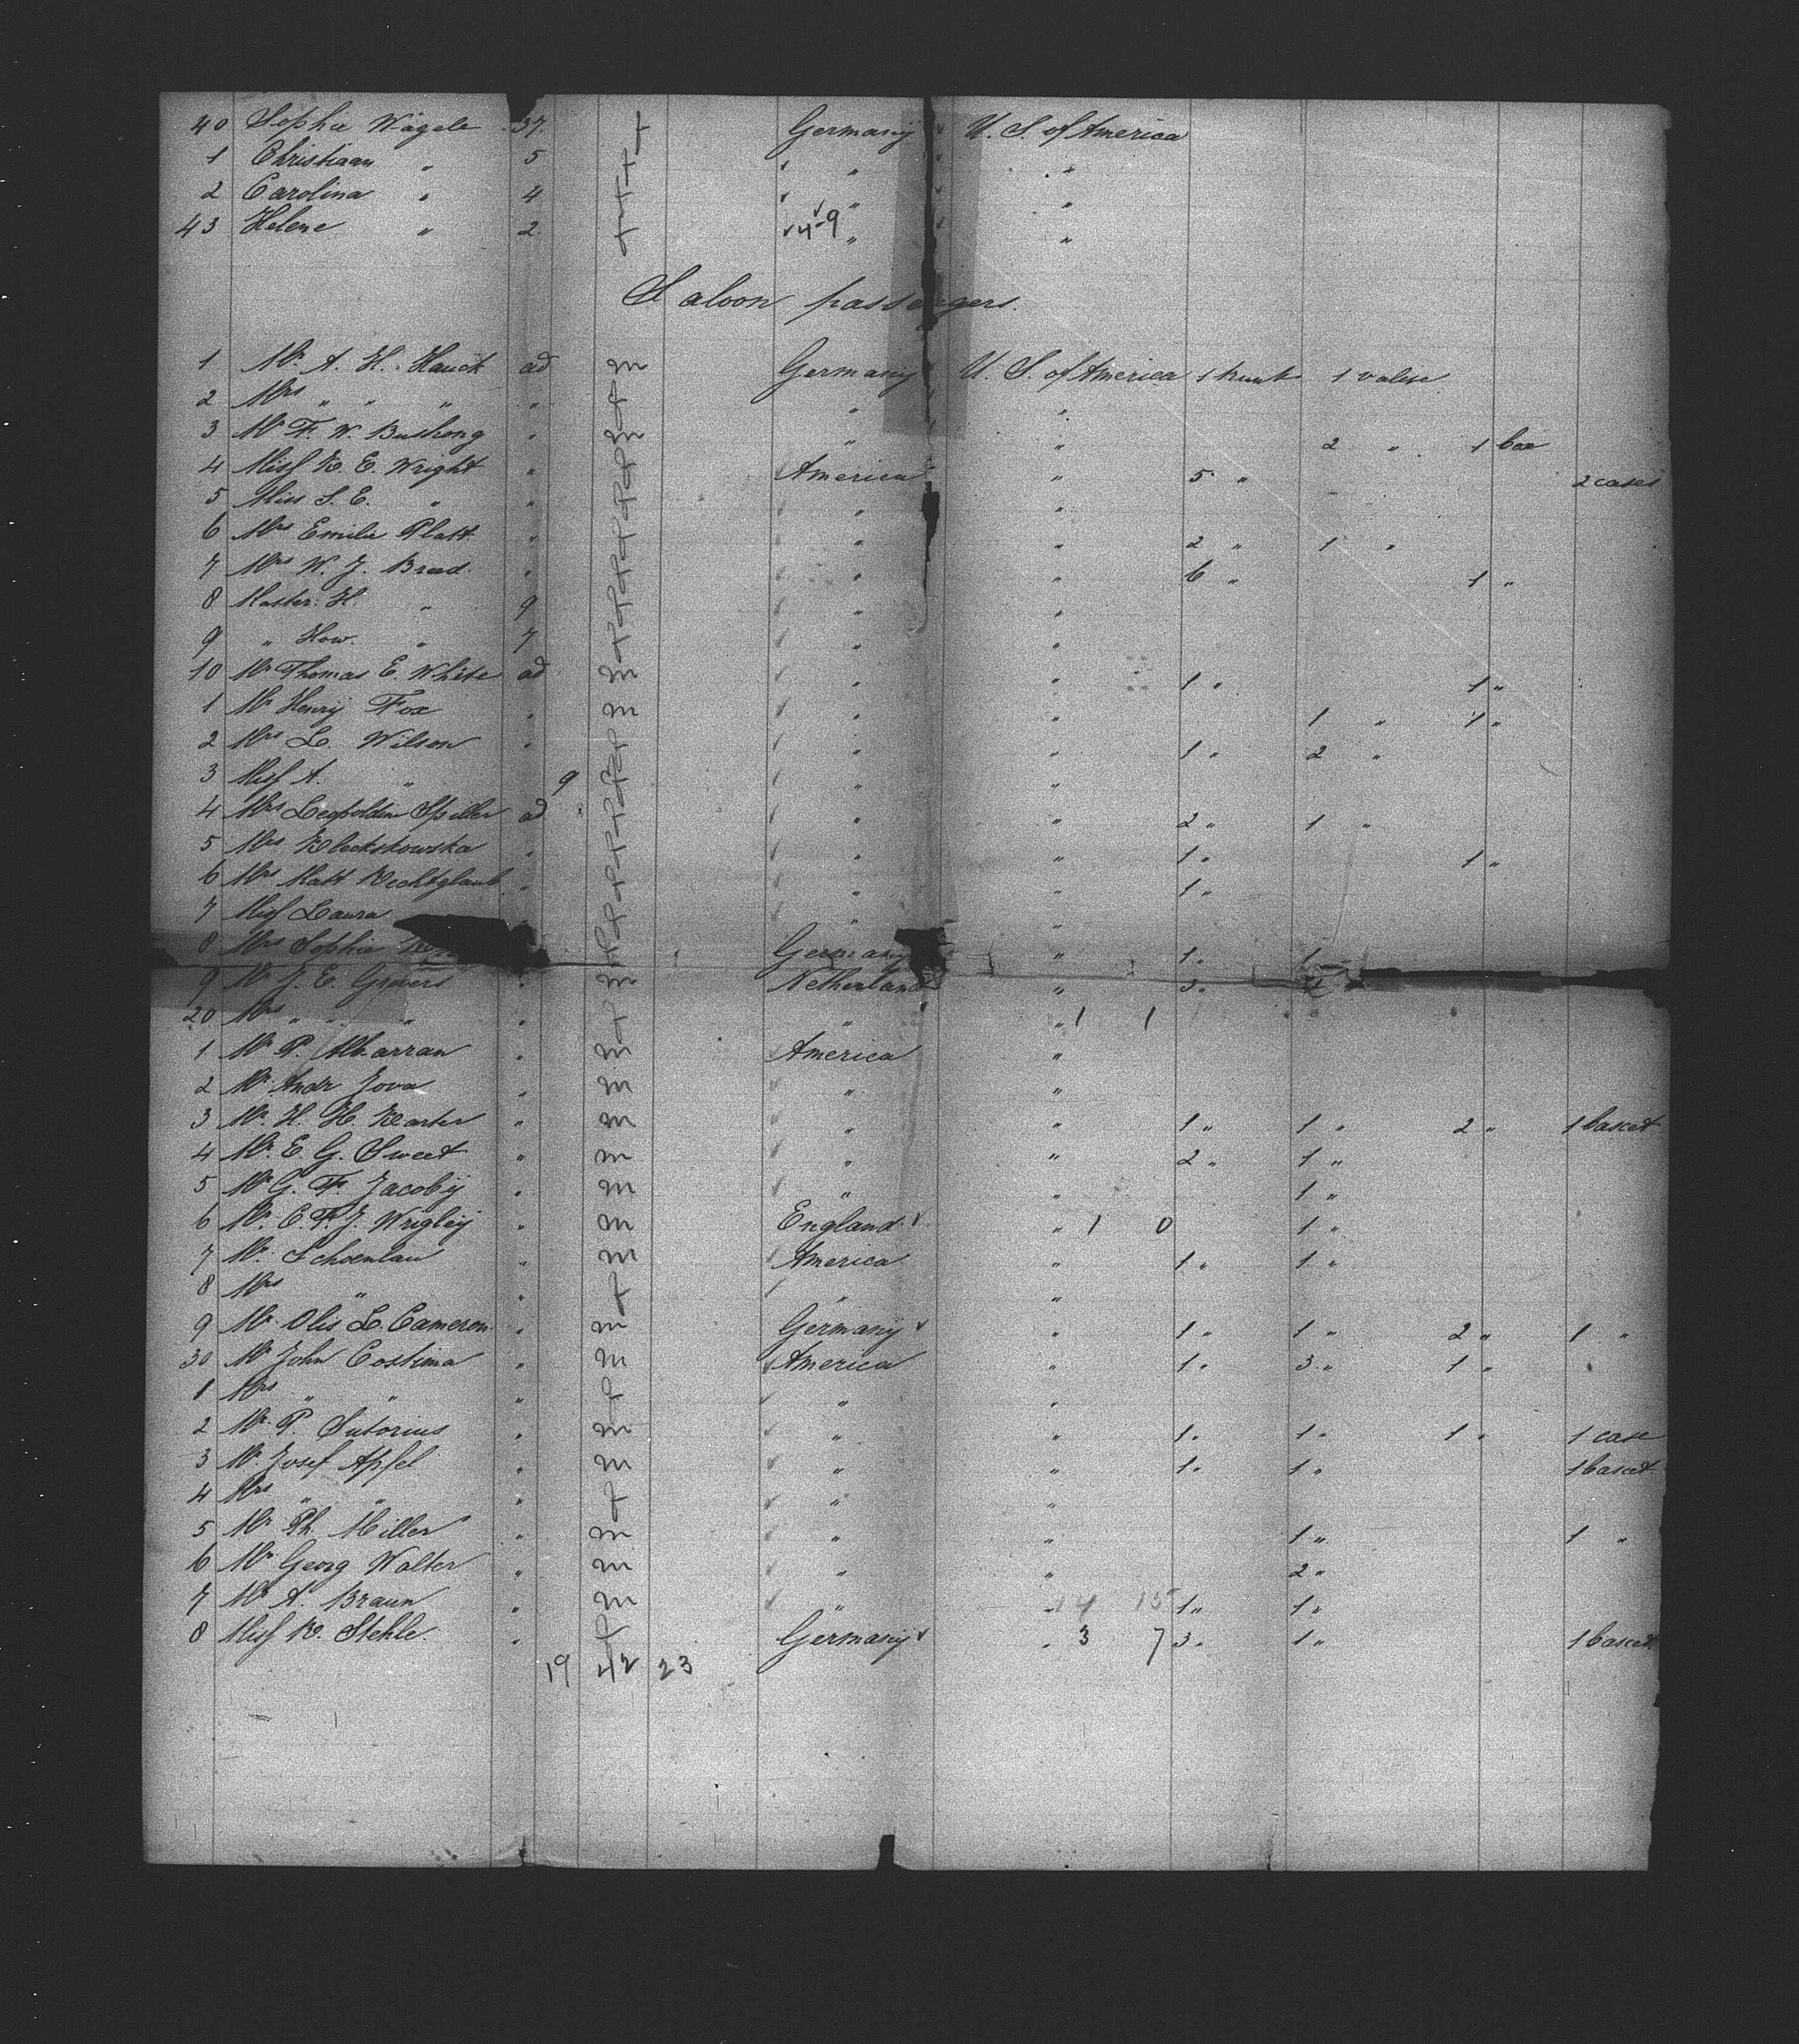 40 Sophie Wägele 37 Germany U. S. of America
1 Christiaan " 5 " "
2 Carolina " 4 " "
43 Helene " 2 49 " "
Saloon passengers.
1 Mr. A. H. Hauck ad m Germany U. S. of America 1 trunk 1 valise
2 Mrs " " " " " "
3 Mr F. W. Bushong " m " " 2 " 1 box
4 Miss K. E. Wright " America " 5 " 2 cases
5 Miss S. E. " " " "
6 Mrs Emilie Platt " " " 2 " 1 "
7 Mrs W. J. Breed " " " 6 " 1 "
8 Master H. " 9 " "
9 " How. " 7 " "
10 Mr Thomas E. White ad m " " 1 " 1 "
1 Mr Henry Fox " m " " 1 " 1 "
2 Mrs L. Wilson " " " 1 " 2 "
3 Miss A. " 9 " "
4 Mrs Leopoldin Spiller ad " " 2 " 1 "
5 Mrs Kleckskowska " " " 1 " 1 "
6 Mrs Matt Kechtglaub " " " 1 "
7 Miss Laura " "
8 Mrs Sophie Germany " 1 " 1
9 Mr J. E. Grevers " m Netherland " 3 "
20 Mrs " " " " " " 1 1
1 Mr P. Albarran " m America "
2 Mr Andr Jova " m " "
3 Mr. H. H. Karter " m " " 1 " 1 " 2 " 1 bascet
4 Mr. E. G. Sweet " m " " 2 " 1 "
5 Mr G. F. Jacoby " m " " 1 "
6 Mr. C. F. J. Wrigley " m England " 1 0 1 "
7 Mr. Schoenlau " m America " 1 " 1 "
8 Mrs " " " "
9 Mr. Olis L. Cameron " m Germany " 1 " 1 " 2 " 1 "
30 Mr John Costima " m America " 1 " 3 " 1 "
1 Mrs " " " " "
2 Mr. P. Sutorius " m " " 1 " 1 " 1 " 1 case
3 Mr. Josef Apfel " m " " 1 " 1 " 1 bascet
4 Mrs " " " " "
5 Mr Ph. Miller " m " " 1 " 1 "
6 Mr Georg Walter " m " " 2 "
7 Mr A. Braun " m " " 14 15 1 " 1 "
8 Miss K. Stehle. " Germany " 3 7 3 " 1 " 1 bascet
19 42 23